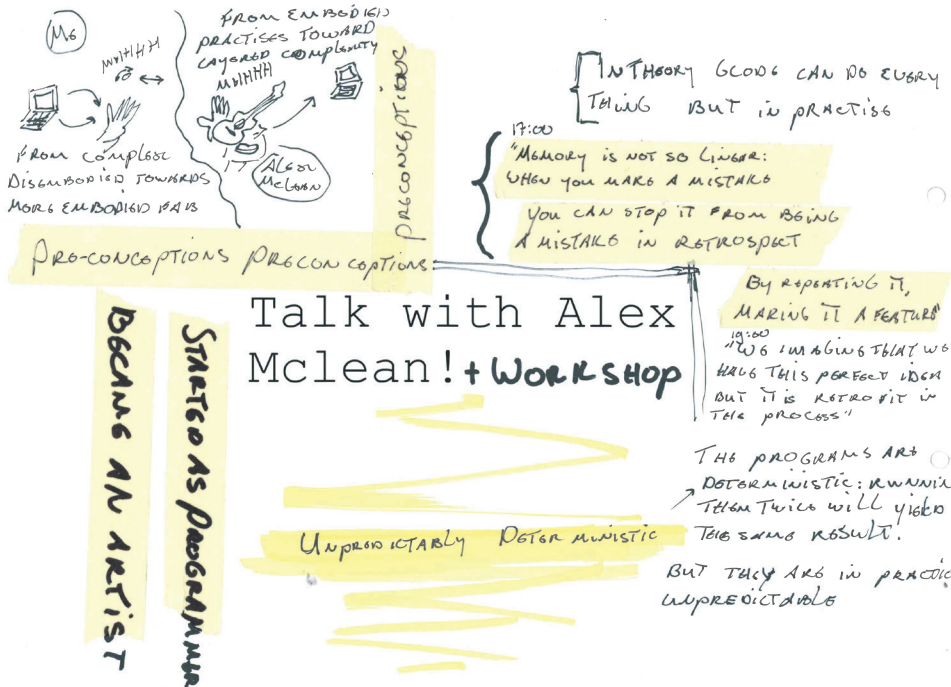 ME
FROM COMPLEX
DISEMBODIED TOWARDS
MORE EMBODIED
FROM EMBODIED
PRACTISES TOWARD
LAYERED COMPLEXITY
ALEX
MCLEAN
PRECONCEPTIONS
PRE-CONCEPTIONS PRECONCEPTIONS
IN THEORY CODE CAN DO EVERY
THING BUT IN PRACTISE
17:00
"MEMORY IS NOT SO LINEAR:
WHEN YOU MAKE A MISTAKE
YOU CAN STOP IT FROM BEING
A MISTAKE IN RETROSPECT
BY REPEATING IT,
MAKING IT A FEATURE"
19:00
"WE IMAGINE THAT WE
HAVE THIS PERFECT IDEA
BUT IT IS RETROFIT IN
THE PROCESS"
Talk with Alex
Mclean! + WORKSHOP
BECAME AN ARTIST
STARTED AS PROGRAMMER
UNPREDICTABLY DETERMINISTIC
THE PROGRAMS ARE
DETERMINISTIC: RUNNIN
THEM TWICE WILL YIELD
THE SAME RESULT.
BUT THEY ARE IN PRACTIC
UNPREDICTABLE